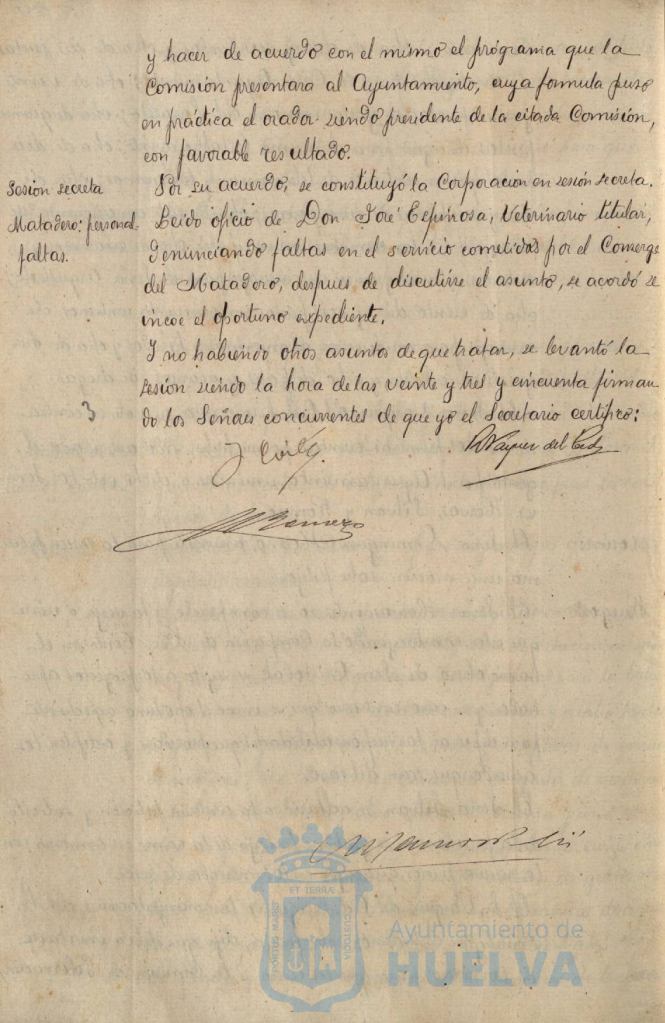 y hacer de acuerdo con el mismo el programa que la
Comisión presentara al Ayuntamiento, cuya formula puso
en práctica el orador siendo presidente de la citada Comisión,
con favorable resultado.
Sesión secreta
Matadero: personal-
faltas.
Por su acuerdo, se constituyó la Corporación en sesión secreta.
Leido oficio de Don José Espinosa, Veterinario titular,
denunciando faltas en el servicio cometidas por el Conserge
del Matadero, despues de discutirse el asunto, se acordó se
incoe el oportuno expediente.
Y no habiendo otros asuntos de que tratar, se levantó la
sesión siendo la hora de las veinte y tres y cincuenta firman
do los Señores concurrentes de que yo el Secretario certifico:
3
Vazquez del Cid
Romero
ET TERRÆ
PORTUS MARIS
CUSTODIA
Ayuntamiento de
HUELVA